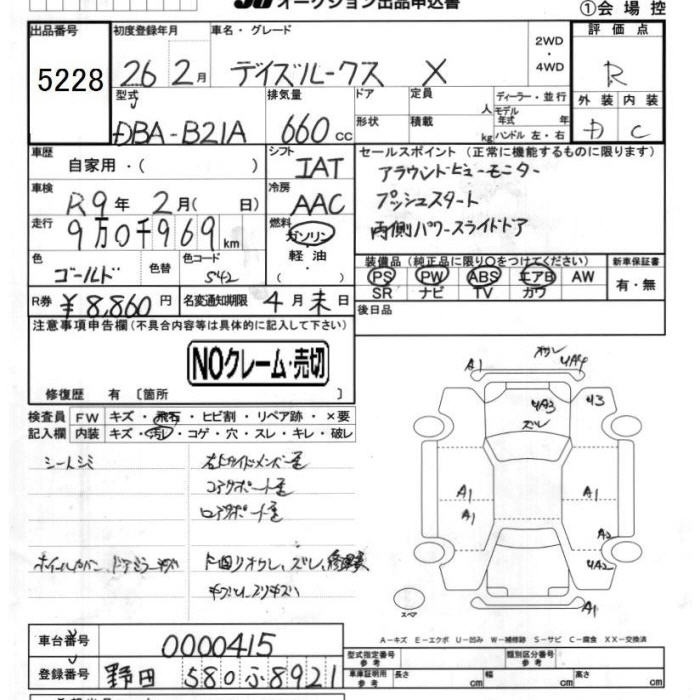 オークション出品申込書
①会場控
出品番号 初度登録年月 車名・グレード 評価点
5228 26 2月 デイズルークス X 2WD・4WD R
型式 排気量 ドア 定員 人 ディーラー・並行 外装 内装
DBA-B21A 660cc 形状 積載 kg モデル年式 年 ハンドル 左・右 D C
車歴 シフト セールスポイント (正常に機能するものに限ります)
自家用・( ) IAT アラウンドビューモニター
車検 冷房 プッシュスタート
R9年 2月( 日) AAC 両側パワースライドドア
走行 燃料
9万0千969km ガソリン 軽油 ( )
色 色替 色コード 装備品 (純正品に限り○をつけてください) 新車保証書
ゴールド S42 PS PW ABS エアB AW 有・無
SR ナビ TV カワ
R券 ¥8,860円 名変通知期限 4月末日 後日品
注意事項申告欄(不具合内容等は具体的に記入して下さい)
NOクレーム・売切
修復歴 有〔箇所 〕
検査員 FW キズ・飛石・ヒビ割・リペア跡・×要
記入欄 内装 キズ・汚れ・コゲ・穴・スレ・キレ・破レ
シートシミ 右サイドメンバー歪
コアサポート歪
ロアサポート歪
ホイールカバー、ドアミラーキズ
A1 UA4
UA3 U3
ズレ
A1 A1
A1
A2
UA2
スペア
A1
A-キズ E-エクボ U-凹み W-補修跡 S-サビ C-腐食 XX-交換済
車台番号 0000415 型式指定番号 参考 類別区分番号 参考
登録番号 野田 580 ふ 8921 車庫証明用 参考 長さ cm 幅 cm 高さ cm